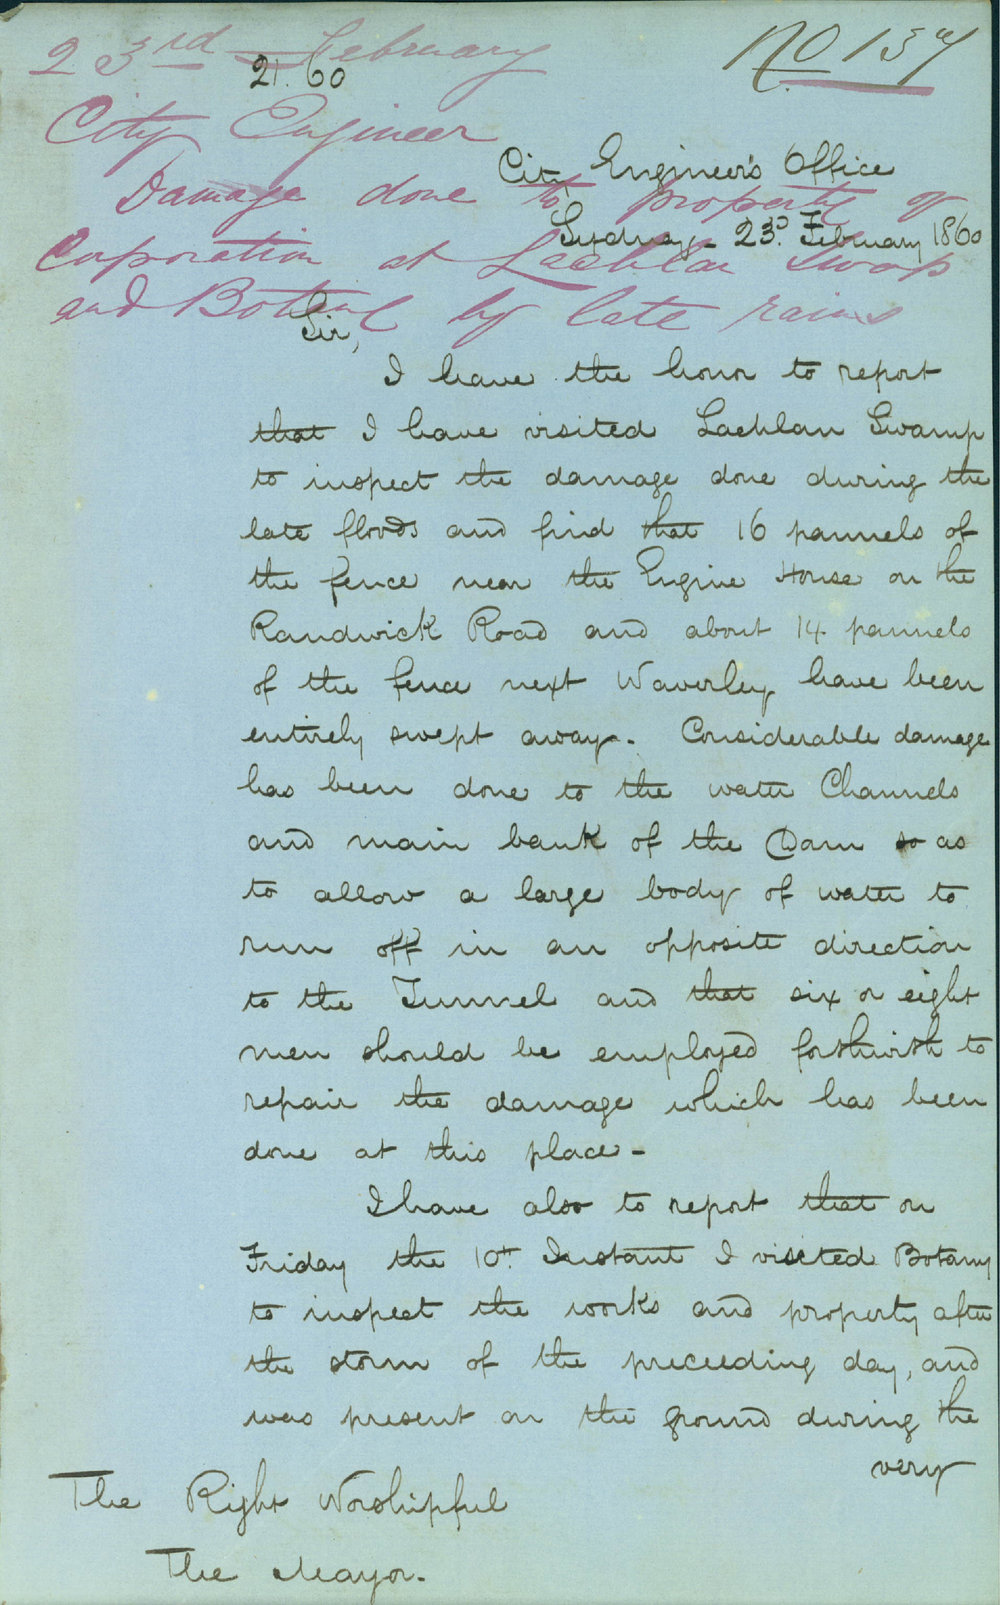 23rd February
No 157
21.60
City Engineer
City Engineer's Office
Damage done to property of
Sydney - 23d. February 1860
Corporation at Lachlan Swamp
and Botany by late rains
Sir,
I have the honor to report
that I have visited Lachlan Swamp
to inspect the damage done during the
late floods and find that 16 pannels of
the fence near the Engine House on the
Randwick Road and about 14 pannels
of the fence next Waverley have been
entirely swept away. Considerable damage
has been done to the water Channels
and main bank of the Dam so as
to allow a large body of water to
run off in an opposite direction
to the Tunnel and that six or eight
men should be employed forthwith to
repair the damage which has been
done at this place -
I have also to report that on
Friday the 10th Instant I visited Botany
to inspect the works and property after
the storm of the preceeding day, and
was present on the ground during the
very
The Right Worshipful
The Mayor.